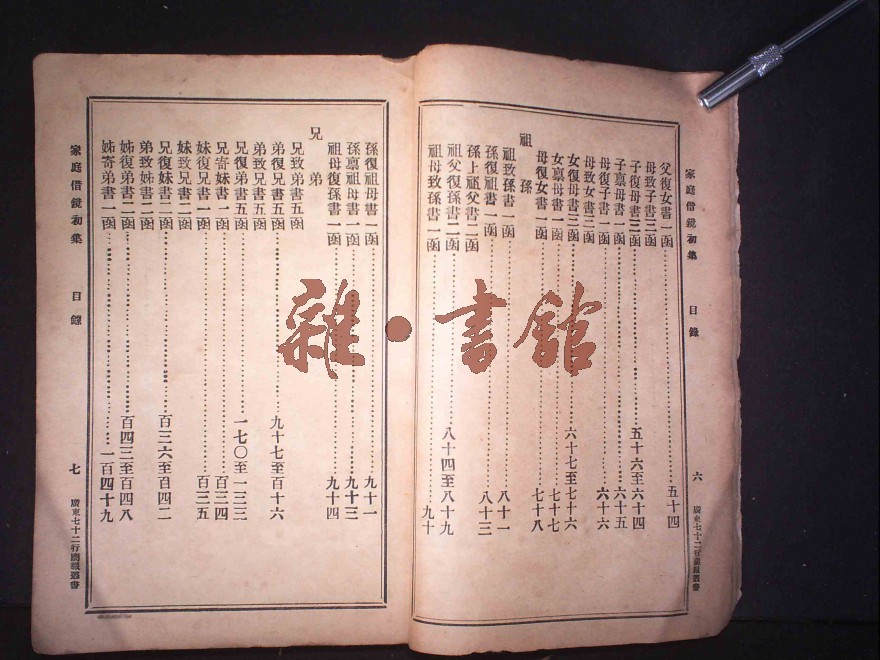 家庭借鏡初集 目錄 六 廣東七十二行商報叢書
父復女書一函……五十四
母致子書三函
子復母書三函……五十六至六十四
子稟母書一函……六十五
母復子書一函……六十六
母致女書三函
女復母書三函……六十七至七十六
女稟母書一函……七十七
母復女書一函……七十八
祖孫
祖致孫書一函……八十一
孫復祖書一函……八十三
孫上祖父書二函
祖父復孫書二函……八十四至八十九
祖母致孫書一函……九十
孫復祖母書一函……九十一
孫稟祖母書一函……九十三
祖母復孫書一函……九十四
兄弟
兄致弟書五函
弟復兄書五函……九十七至百十六
弟致兄書五函
兄復弟書五函……一七〇至一三三
兄寄妹書一函……百三四
妹復兄書一函……百三五
妹致兄書二函
兄復妹書二函……百三六至百四二
弟致姊書二函
姊復弟書二函……百四三至百四八
姊寄弟書一函……一百四十九
家庭借鏡初集 目錄 七 廣東七十二行商報叢書
雜·書館